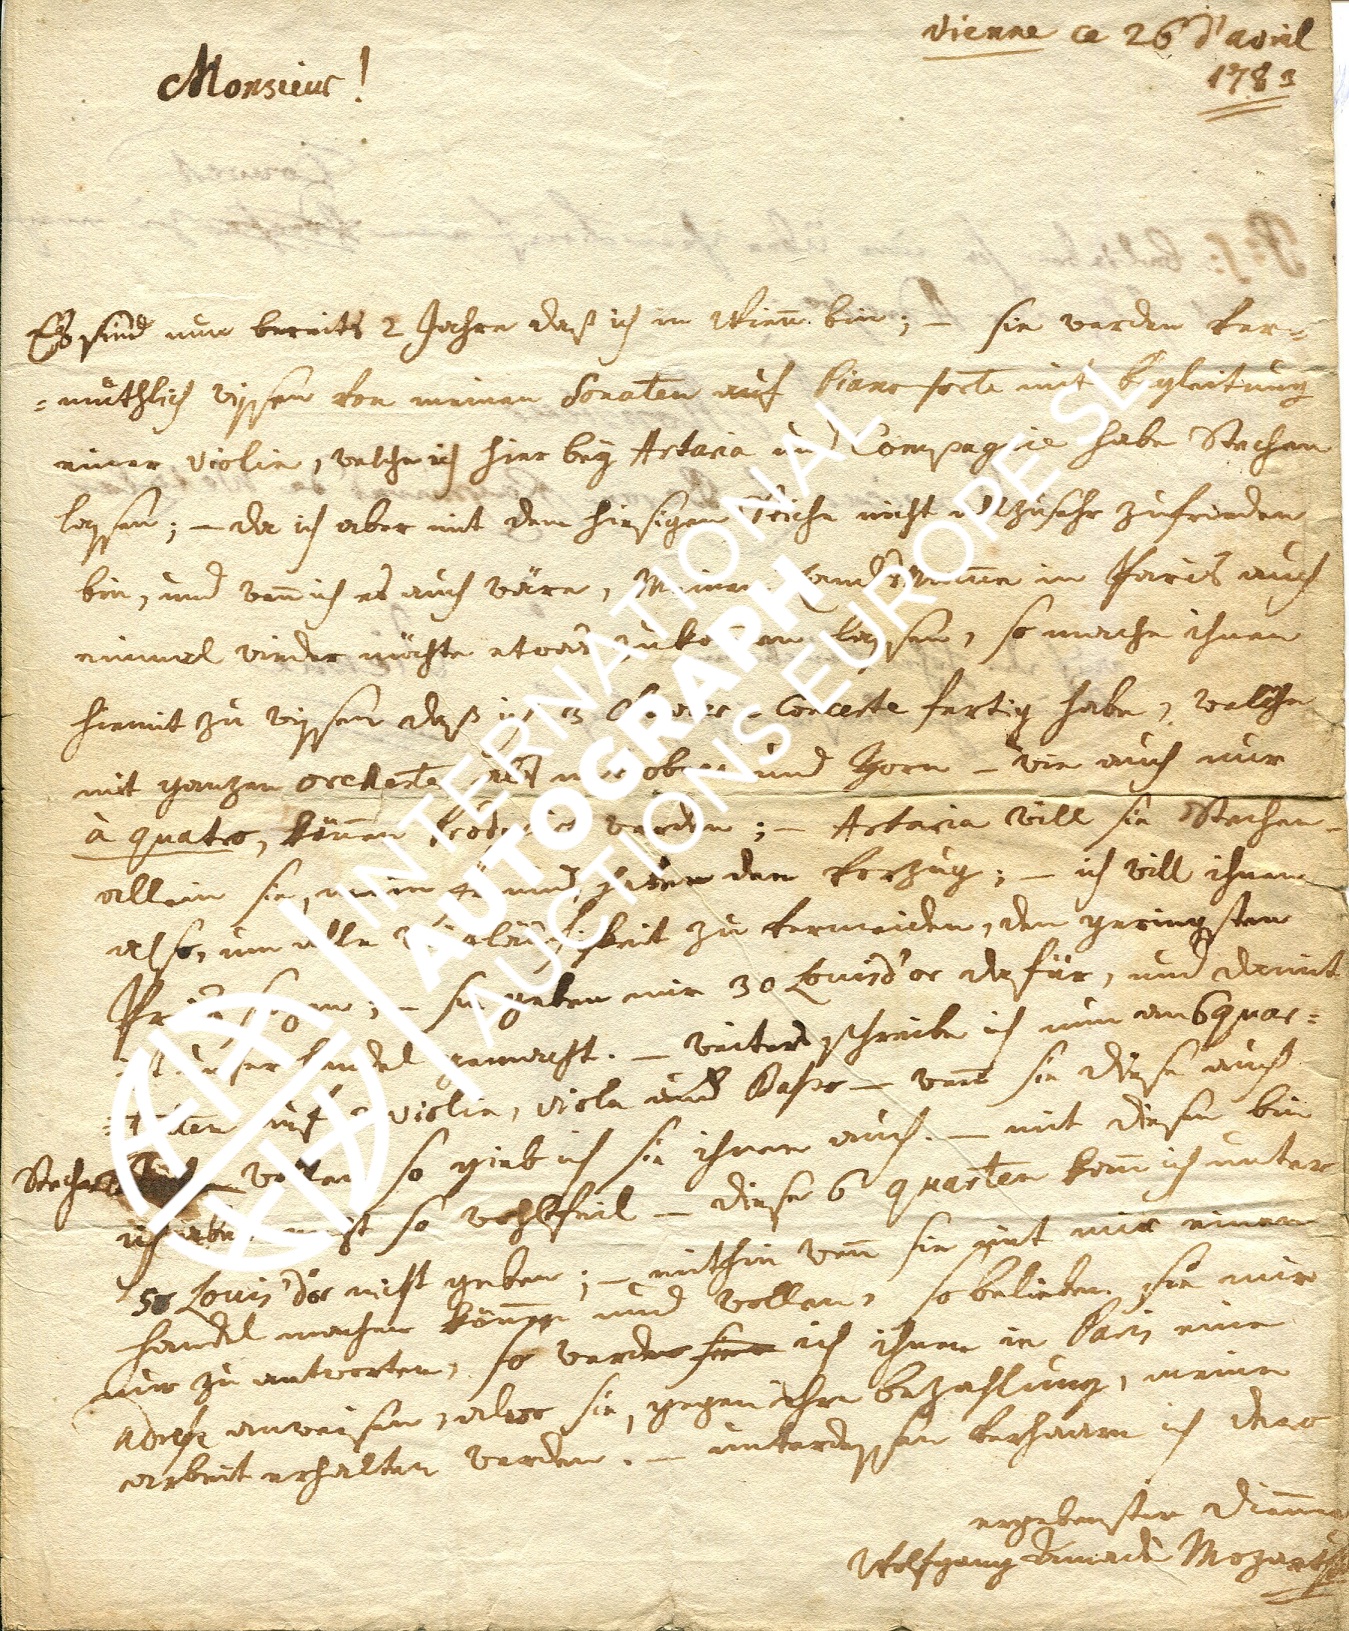 Vienne ce 26 d'avril
1783
Monsieur!
Es sind nun bereits 2 Jahre daß ich in Wienn bin; – sie werden ver-
=muthlich wissen von meinen Sonaten auf Piano forte mit begleitung
einer Violin, welche ich hier bey Artaria und Compagnie habe Stechen
lassen; – da ich aber mit dem hiesigen Stiche nicht allzusehr zufrieden
bin, und wenn ich es auch wäre, Meinen Landsmann in Paris auch
einmal wieder möchte etwas zukommen lassen, so mache ihnen
hiemit zu wissen daß ich 3 Clavier-Concerte fertig habe, welche
mit ganzen orchester, als mit oboen und Horn – wie auch nur
à quatro, können Produciert werden; – Artaria will sie Stechen
allein sie, mein freund, haben den Vorzug; – ich will ihnen
also, um alle Weitläufigkeit zu vermeiden, den geringsten
Preis sagen; – sie geben mir 30 Louis d'or dafür, und damit
ist unser handel gemacht. – weiters schreibe ich nun an 6 quar=
=tetten auf 2 violin, viola und Basso – wenn sie diese auch
Stechen wollen so gieb ich sie ihnen auch. – mit diesen bin
ich aber nicht so wohlfeil – diese 6 quartetten kann ich unter
50 Louis'dor nicht geben; – mithin wenn sie mit mir einen
handel machen können und wollen, so belieben sie mir
nur zu antworten, so werde ich ihnen in Paris eine
Adresse anweisen, alwo sie, gegen ihre bezahlung, meine
arbeit erhalten werden. – unterdessen verharre ich dero
ergebenster Diener
Wolfgang Amadè Mozart
INTERNATIONAL
AUTOGRAPH
AUCTIONS EUROPE SL